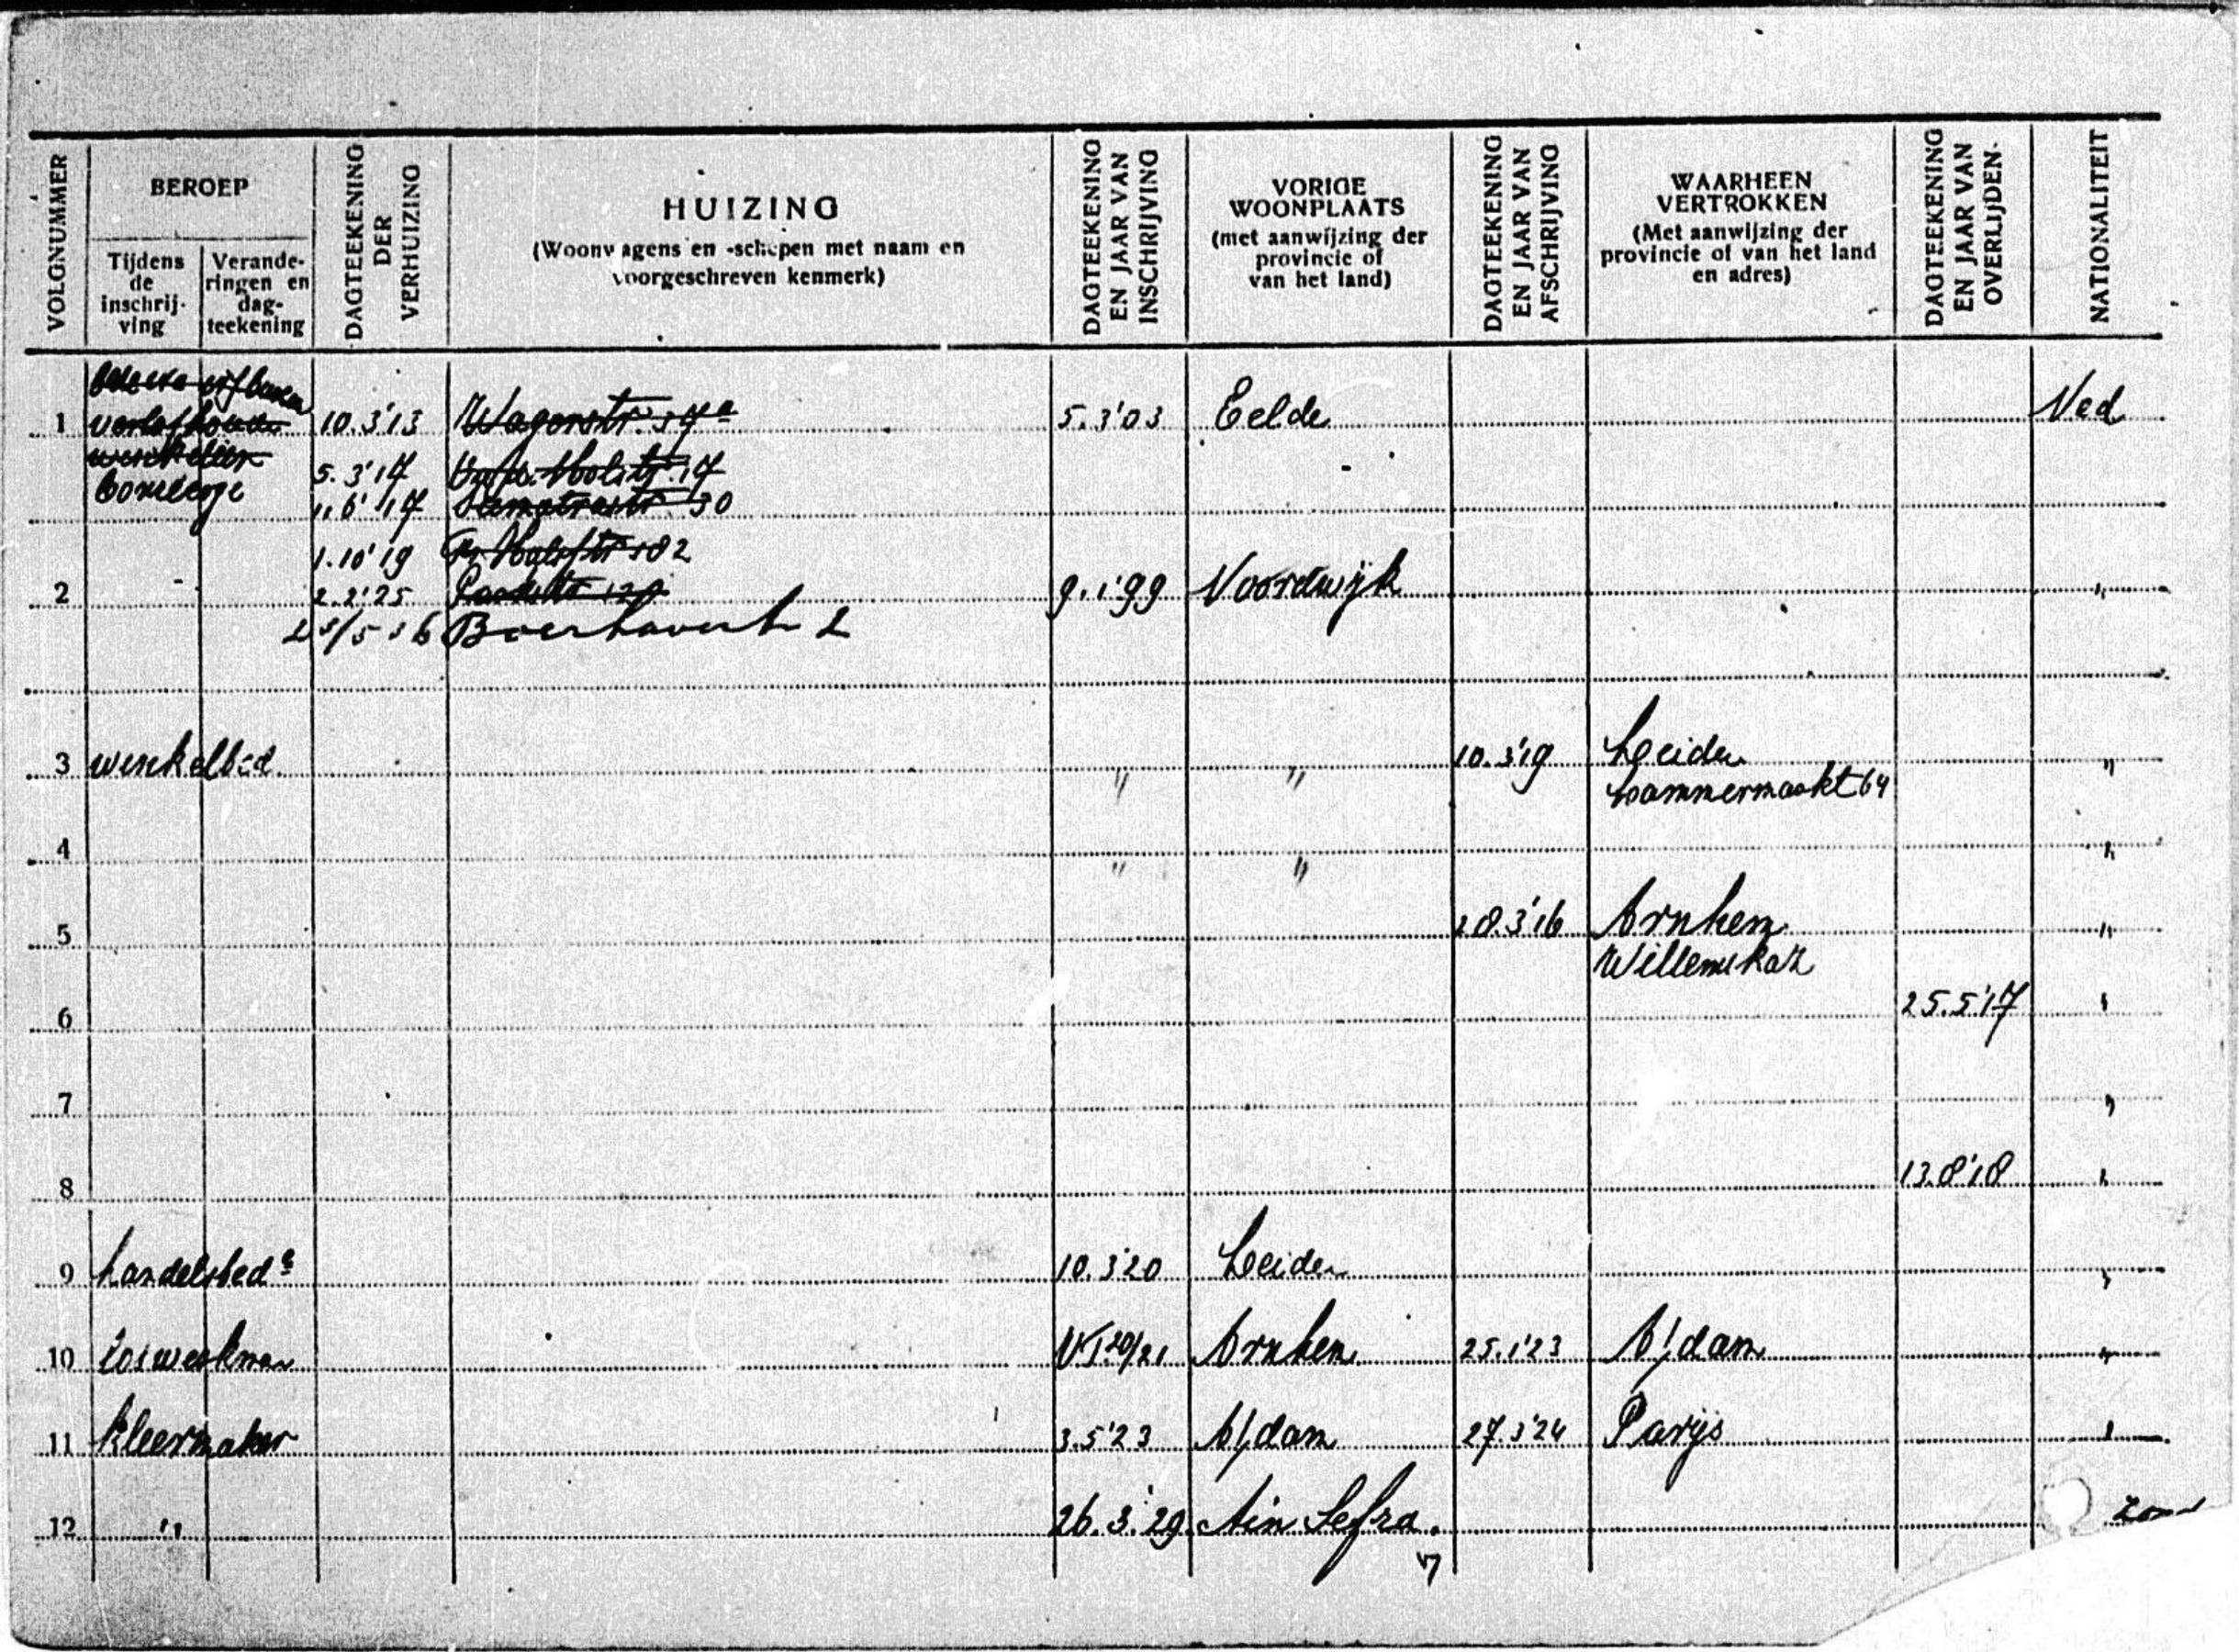 VOLGNUMMER
BEROEP
Tijdens
de
inschrij-
ving
Verande-
ringen en
dag-
teekening
DAGTEEKENING
DER
VERHUIZING
HUIZING
(Woonwagens en -schepen met naam en
voorgeschreven kenmerk)
DAGTEEKENING
EN JAAR VAN
INSCHRIJVING
VORIGE
WOONPLAATS
(met aanwijzing der
provincie of
van het land)
DAGTEEKENING
EN JAAR VAN
AFSCHRIJVING
WAARHEEN
VERTROKKEN
(Met aanwijzing der
provincie of van het land
en adres)
DAGTEEKENING
EN JAAR VAN
OVERLIJDEN
NATIONALITEIT
1 verlofhouder 10.3'13 Wagenstr. 5.3'03 Eelde Ned
winkelier 5.3'17
conciërge 1.6'17 Sumatrastr 30
1.10'19
2 2.2'25 9.1'99 Noordwijk "
Boerhavestr 2
3 winkelbed " " 10.3'19 Leiden "
Lammermarkt 64
4 " " "
5 28.3'16 Arnhem "
Willemskaz
6 25.5'17 "
7 "
8 13.8'18 "
9 handelsbede 10.3'20 Leiden "
10 loswerkman VI 20/21 Arnhem 25.1'23 A/dam "
11 kleermaker 3.5'23 A/dam 27.3'24 Parijs "
12 " 26.3.'29 Ain Sefra.